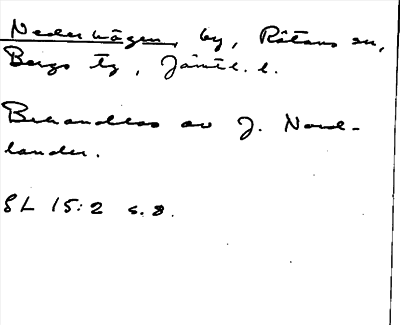 Nederhågen, by, Rätans sn,
Bergs tg, Jämtl. l.
Behandlas av J. Nord-
lander.
SL 15:2 s. 8.